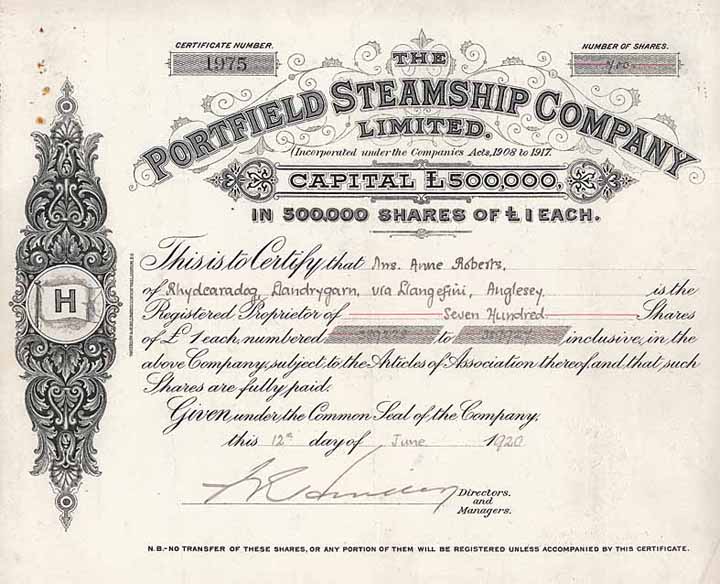 CERTIFICATE NUMBER.
1975
NUMBER OF SHARES.
700
THE
PORTFIELD STEAMSHIP COMPANY
LIMITED.
(Incorporated under the Companies Acts, 1908 to 1917.
CAPITAL £500,000,
IN 500,000 SHARES OF £1 EACH.
This is to Certify that Mrs. Anne Roberts,
of Rhydcaradog, Llandrygarn, via Llangefni, Anglesey is the
Registered Proprietor of Seven Hundred Shares
of £1 each, numbered to inclusive, in the
above Company, subject to the Articles of Association thereof, and that such
Shares are fully paid.
Given under the Common Seal of the Company,
this 12th day of June 1920
Directors.
and
Managers.
H
N.B.-NO TRANSFER OF THESE SHARES, OR ANY PORTION OF THEM WILL BE REGISTERED UNLESS ACCOMPANIED BY THIS CERTIFICATE.